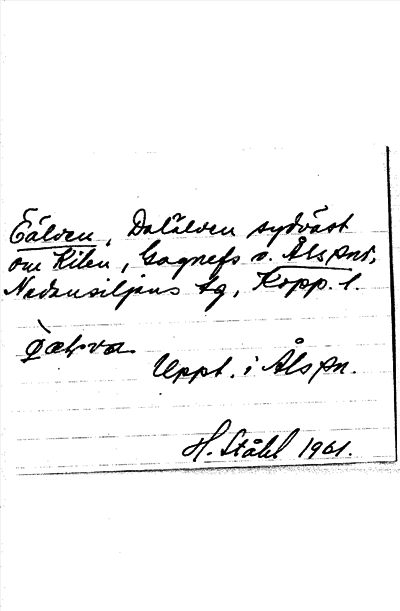 Eälven, Dalälven sydväst
om Kilen, Gagnefs o. Åls snr,
Nedansiljans tg, Kopp. l.
Uppt. i Åls sn.
H. Ståhl 1961.